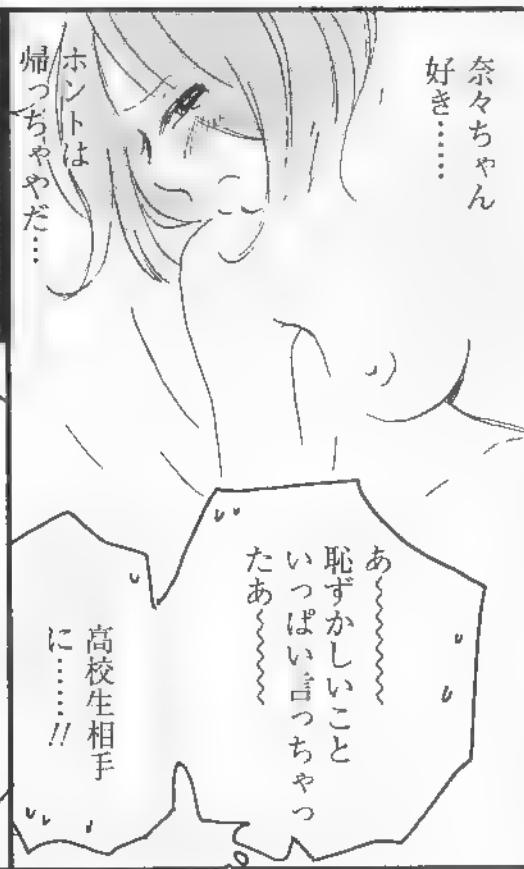 奈々ちゃん
好き……
ホントは
帰っちゃやだ…
あ〜〜〜〜
恥ずかしいこと
いっぱい言っちゃっ
たあ〜〜〜〜
高校生相手
に……!!